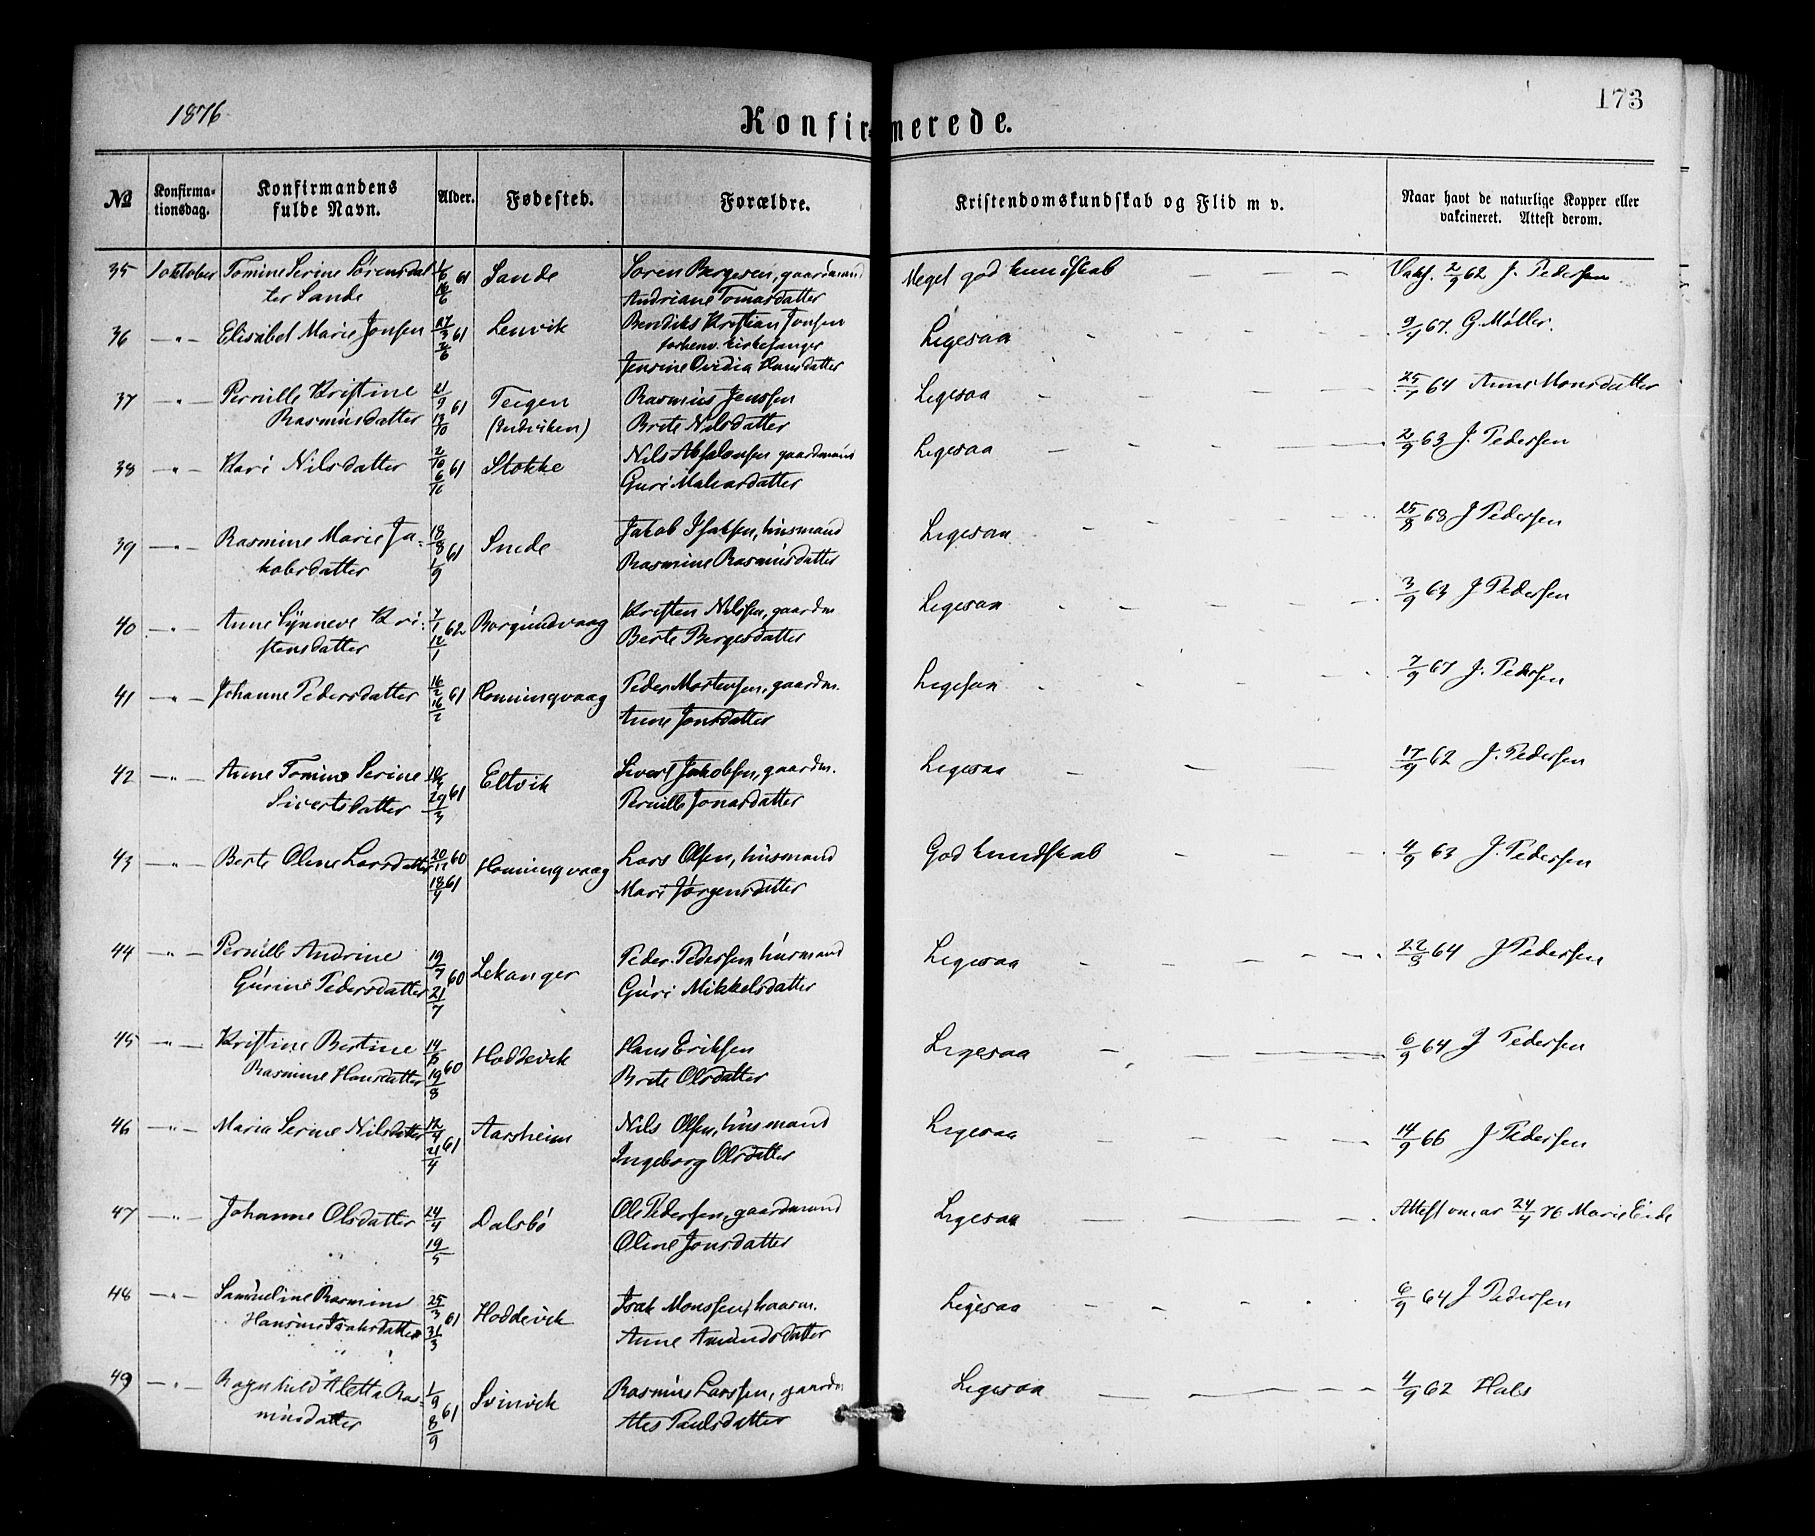 1876
Konfirmerede.
173
№ Konfirma-tionsdag. Konfirmandens fulde Navn. Alder. Fødested. Forældre. Kristendomskundskab og Flid m v. Naar havt de naturlige Kopper eller vakcineret. Attest derom.
35 1 oktober Tomine Serine Sörensdat 61 Sande Sören Bergesen, gaardmand Meget god kundskab — — — Vakc. 2/9 62 J. Pedersen
ter Sande 16/6 Andriane Tomasdatter
36 — " — Elisabet Marie Jonsen 27/3 61 Lenvik Bendiks Kristian Jonsen Ligesaa 9/9 67. G. Møller.
forhenv. kirkesanger
Jensine Ovidia Hansdatter
37 — " — Pernille Kristine 21/9 61 Teigen Rasmus Jenssen Ligesaa 25/7 64 Anne Monsdatter
Rasmusdatter 13/10 (Indviken) Brite Nilsdatter
38 — " — Kari Nilsdatter 2/10 61 Stokke Nils Absalonsen gaardmand Ligesaa 2/9 63 J. Pedersen
6/10 Guri
39 — " — Rasmine Marie Ja- 18/8 61 Sunde Jakob Isaksen, husmand Ligesaa 25/8 68 J Pedersen
kobsdatter 1/9 Rasmine Rasmusdatter
40 — " — Anne Synneve Kri- 7/1 62 Borgundvaag Kristen Nilssen, gaardm Ligesaa 3/9 63 J Pedersen
stensdatter 12/1 Berte Bergesdatter
41 — " — Johanne Pedersdatter 16/2 61 Honningvaag Peder Mortensen, gaardm. Ligesaa 7/9 67 J. Pedersen
16/2 Anne Jonsdatter
42 — " — Anne Tomine Serine 61 Eltvik Sivert Jakobsen, gaardm. Ligesaa 17/9 62 J. Pedersen
Sivertsdatter 29/3 Pernille Jonasdatter
43 — " — Berte Oline Larsdatter 20/12 60 Honningvaag Lars Olsen, husmand God kundskab 4/9 63 J. Pedersen
18/4 61 Mari Jörgensdatter
44 — " — Pernille Andrine 19/7 60 Lekanger Peder Pedersen husmand Ligesaa 64 J Pedersen
Gurine Pedersdatter 21/7 Guri Mikkelsdatter
45 — " — Kristine Bertine 14/8 60 Hoddevik Hans Eriksen Ligesaa 6/9 64 J Pedersen
Rasmine Hansdatter 19/8 Brite Olsdatter
46 — " — Maria Serine Nilsdatter 12/4 61 Aarsheim Nils Olsen, husmand Ligesaa 14/9 66 J Pedersen
21/4 Ingeborg Olsdatter
47 — " — Johanne Olsdatter 24/4 Dalsbö Ole Pedersen, gaardmand Ligesaa Attest 24/4 76 Marie Eide
19/5 Oline Jonsdatter
48 — " — Samueline Rasmine 25/3 61 Hoddevik Isak Monssen, Ligesaa 6/9 64 J Pedersen
Hansine Isaksdatter 31/3 Anne Amundsdatter
49 — " — Ragnhild Aletta Ras- 1/9 61 Svinvik Rasmus Larssen, gaardm Ligesaa 4/9 62 Hals
musdatter 8/9 Paulsdatter